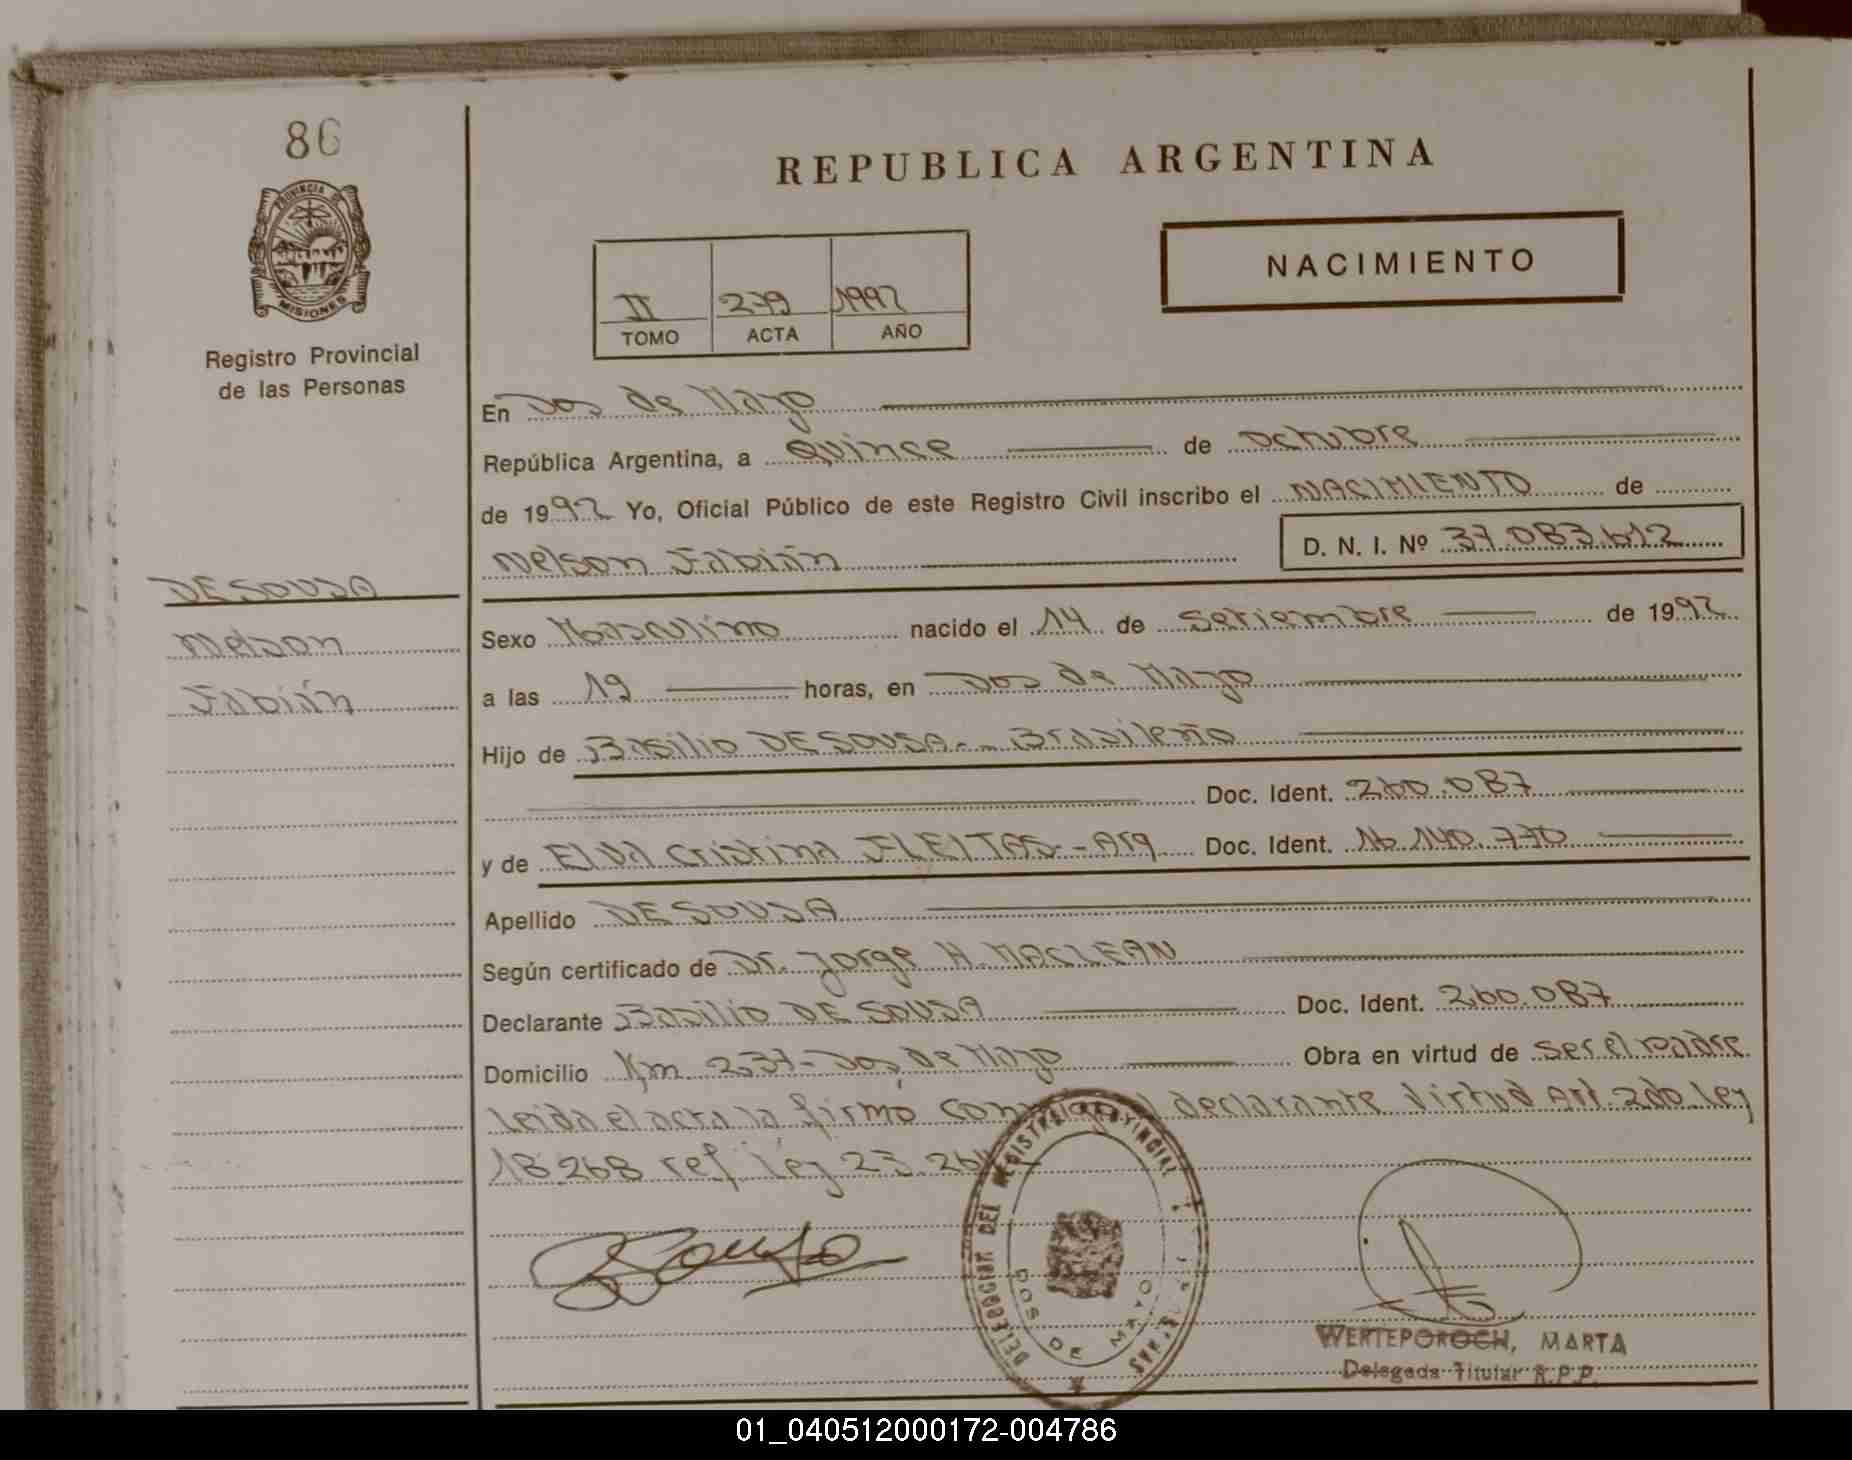 86
PROVINCIA DE
MISIONES
Registro Provincial
de las Personas
DE SOUSA
Nelson
Fabián
REPUBLICA ARGENTINA
NACIMIENTO
II 279 1992
TOMO ACTA AÑO
En Dos de Mayo
República Argentina, a Quince de Octubre
de 1992 Yo, Oficial Público de este Registro Civil inscribo el NACIMIENTO de
Nelson Fabián D. N. I. Nº 37.083.612
Sexo Masculino nacido el 14 de Setiembre de 1992
a las 19 horas, en Dos de Mayo
Hijo de Basilio DE SOUSA.- Brasileño
Doc. Ident. 260.087
y de Elva Cristina FLEITAS.- Arg Doc. Ident. 16.140.770
Apellido DE SOUSA
Según certificado de Dr. Jorge H. MACLEAN
Declarante Basilio DE SOUSA Doc. Ident. 260.087
Domicilio Km. 237- Dos de Mayo Obra en virtud de ser el padre
Leida el acta la firmó declarante virtud Art. 2do. Ley
18.268 ref. Ley 23.264
DELEGACION DEL REGISTRO PROVINCIAL
DOS DE MAYO
WERTEPOROCH, MARTA
Delegada Titular R.P.P.
01_040512000172-004786